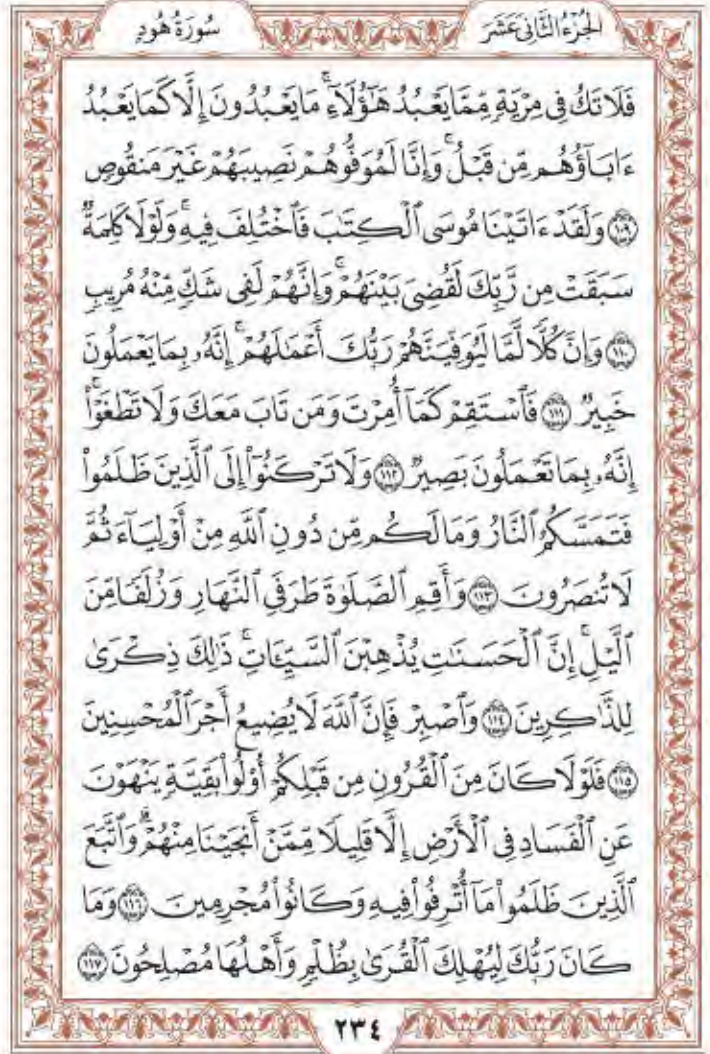 الجُزْءُ الثَّانِي عَشَرَ سُورَةُ هُودٍ
فَلَا تَكُ فِى مِرْيَةٍ مِّمَّا يَعْبُدُ هَـٰٓؤُلَآءِ ۚ مَا يَعْبُدُونَ إِلَّا كَمَا يَعْبُدُ
ءَابَآؤُهُم مِّن قَبْلُ ۚ وَإِنَّا لَمُوَفُّوهُمْ نَصِيبَهُمْ غَيْرَ مَنقُوصٍ
﴿١٠٩﴾ وَلَقَدْ ءَاتَيْنَا مُوسَى ٱلْكِتَـٰبَ فَٱخْتُلِفَ فِيهِ ۚ وَلَوْلَا كَلِمَةٌ
سَبَقَتْ مِن رَّبِّكَ لَقُضِىَ بَيْنَهُمْ ۚ وَإِنَّهُمْ لَفِى شَكٍّ مِّنْهُ مُرِيبٍ
﴿١١٠﴾ وَإِنَّ كُلًّا لَّمَّا لَيُوَفِّيَنَّهُمْ رَبُّكَ أَعْمَـٰلَهُمْ ۚ إِنَّهُۥ بِمَا يَعْمَلُونَ
خَبِيرٌ ﴿١١١﴾ فَٱسْتَقِمْ كَمَآ أُمِرْتَ وَمَن تَابَ مَعَكَ وَلَا تَطْغَوْا۟ ۚ
إِنَّهُۥ بِمَا تَعْمَلُونَ بَصِيرٌ ﴿١١٢﴾ وَلَا تَرْكَنُوٓا۟ إِلَى ٱلَّذِينَ ظَلَمُوا۟
فَتَمَسَّكُمُ ٱلنَّارُ وَمَا لَكُم مِّن دُونِ ٱللَّهِ مِنْ أَوْلِيَآءَ ثُمَّ
لَا تُنصَرُونَ ﴿١١٣﴾ وَأَقِمِ ٱلصَّلَوٰةَ طَرَفَىِ ٱلنَّهَارِ وَزُلَفًا مِّنَ
ٱلَّيْلِ ۚ إِنَّ ٱلْحَسَنَـٰتِ يُذْهِبْنَ ٱلسَّيِّـَٔاتِ ۚ ذَٰلِكَ ذِكْرَىٰ
لِلذَّٰكِرِينَ ﴿١١٤﴾ وَٱصْبِرْ فَإِنَّ ٱللَّهَ لَا يُضِيعُ أَجْرَ ٱلْمُحْسِنِينَ
﴿١١٥﴾ فَلَوْلَا كَانَ مِنَ ٱلْقُرُونِ مِن قَبْلِكُمْ أُو۟لُوا۟ بَقِيَّةٍ يَنْهَوْنَ
عَنِ ٱلْفَسَادِ فِى ٱلْأَرْضِ إِلَّا قَلِيلًا مِّمَّنْ أَنجَيْنَا مِنْهُمْ ۗ وَٱتَّبَعَ
ٱلَّذِينَ ظَلَمُوا۟ مَآ أُتْرِفُوا۟ فِيهِ وَكَانُوا۟ مُجْرِمِينَ ﴿١١٦﴾ وَمَا
كَانَ رَبُّكَ لِيُهْلِكَ ٱلْقُرَىٰ بِظُلْمٍ وَأَهْلُهَا مُصْلِحُونَ ﴿١١٧﴾
٢٣٤